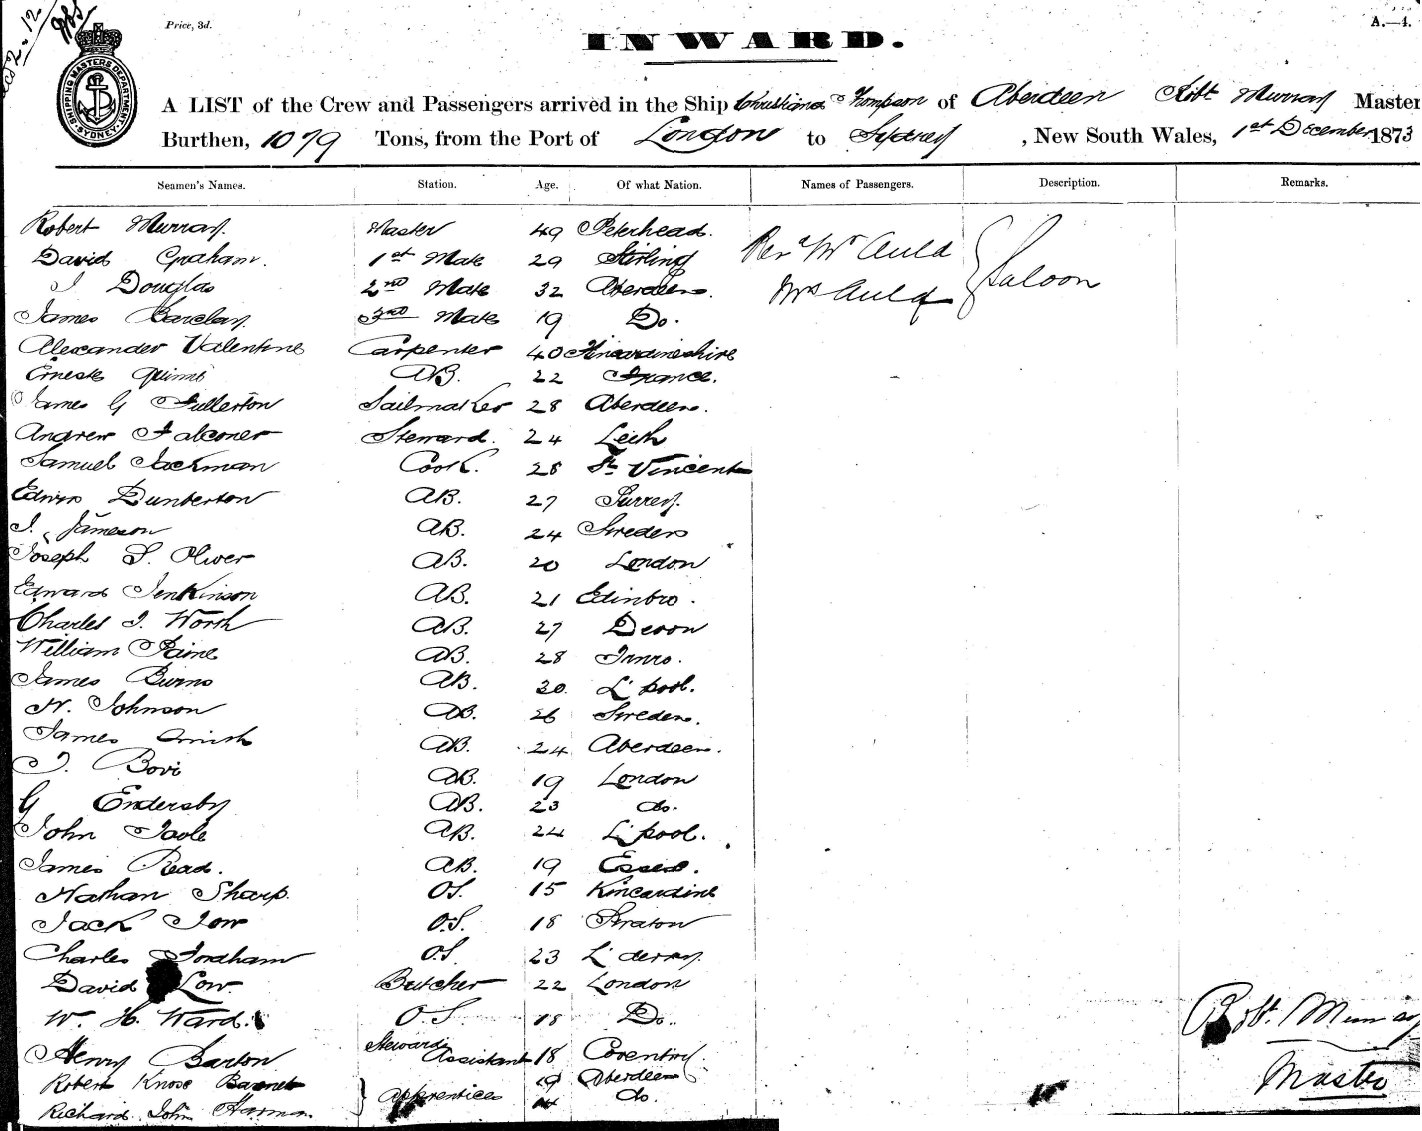 Price, 3d.
A.—4.
INWARD.
SHIPPING MASTERS DEPARTMENT SYDNEY
A LIST of the Crew and Passengers arrived in the Ship Christiana Thompson of Aberdeen Robt Murray Master
Burthen, 1079 Tons, from the Port of London to Sydney, New South Wales, 1st December 1873
Seamen's Names. Station. Age. Of what Nation. Names of Passengers. Description. Remarks.
Robert Murray. Master 49 Peterhead.
David Graham. 1st Mate 29 Stirling Revd Mr Auld
J Douglas 2nd Mate 32 Aberdeen. Mrs Auld Saloon
James Barclay. 3rd Mate 19 Do.
Alexander Valentine Carpenter 40 Kincardineshire
Ernest AB. 22 France.
James G Fullerton Sailmaker 28 Aberdeen.
Andrew Falconer Steward. 24 Leith
Samuel Jackman Cook. 28 St Vincent
Edwin Dunberton AB. 27 Surrey.
J. Jameson AB. 24 Sweden
Joseph S. Oliver AB. 20 London
Edward Jenkinson AB. 21 Edinbro.
Charles J. Worth AB. 27 Devon
William AB. 28
James Burns AB. 30. L'pool.
N. Johnson AB. 26 Sweden.
James Smith AB. 24 Aberdeen.
J. Bovi AB. 19 London
G Endersby AB. 23 do.
John Towle AB. 24 L'pool.
James Read. AB. 19 Essex.
Nathan Sharp. OS. 15 Kincardine
Jack Low O.S. 18
Charles Fordham O.S. 23 L'derry.
David Low. Butcher 22 London
W. H. Ward. O.S. 18 Do.
Henry Barton Stewards Assistant 18 Coventry.
Robert Knose Barnet Apprentices 19 Aberdeen
Richard John Harman. do.
Robt. Murray
Master